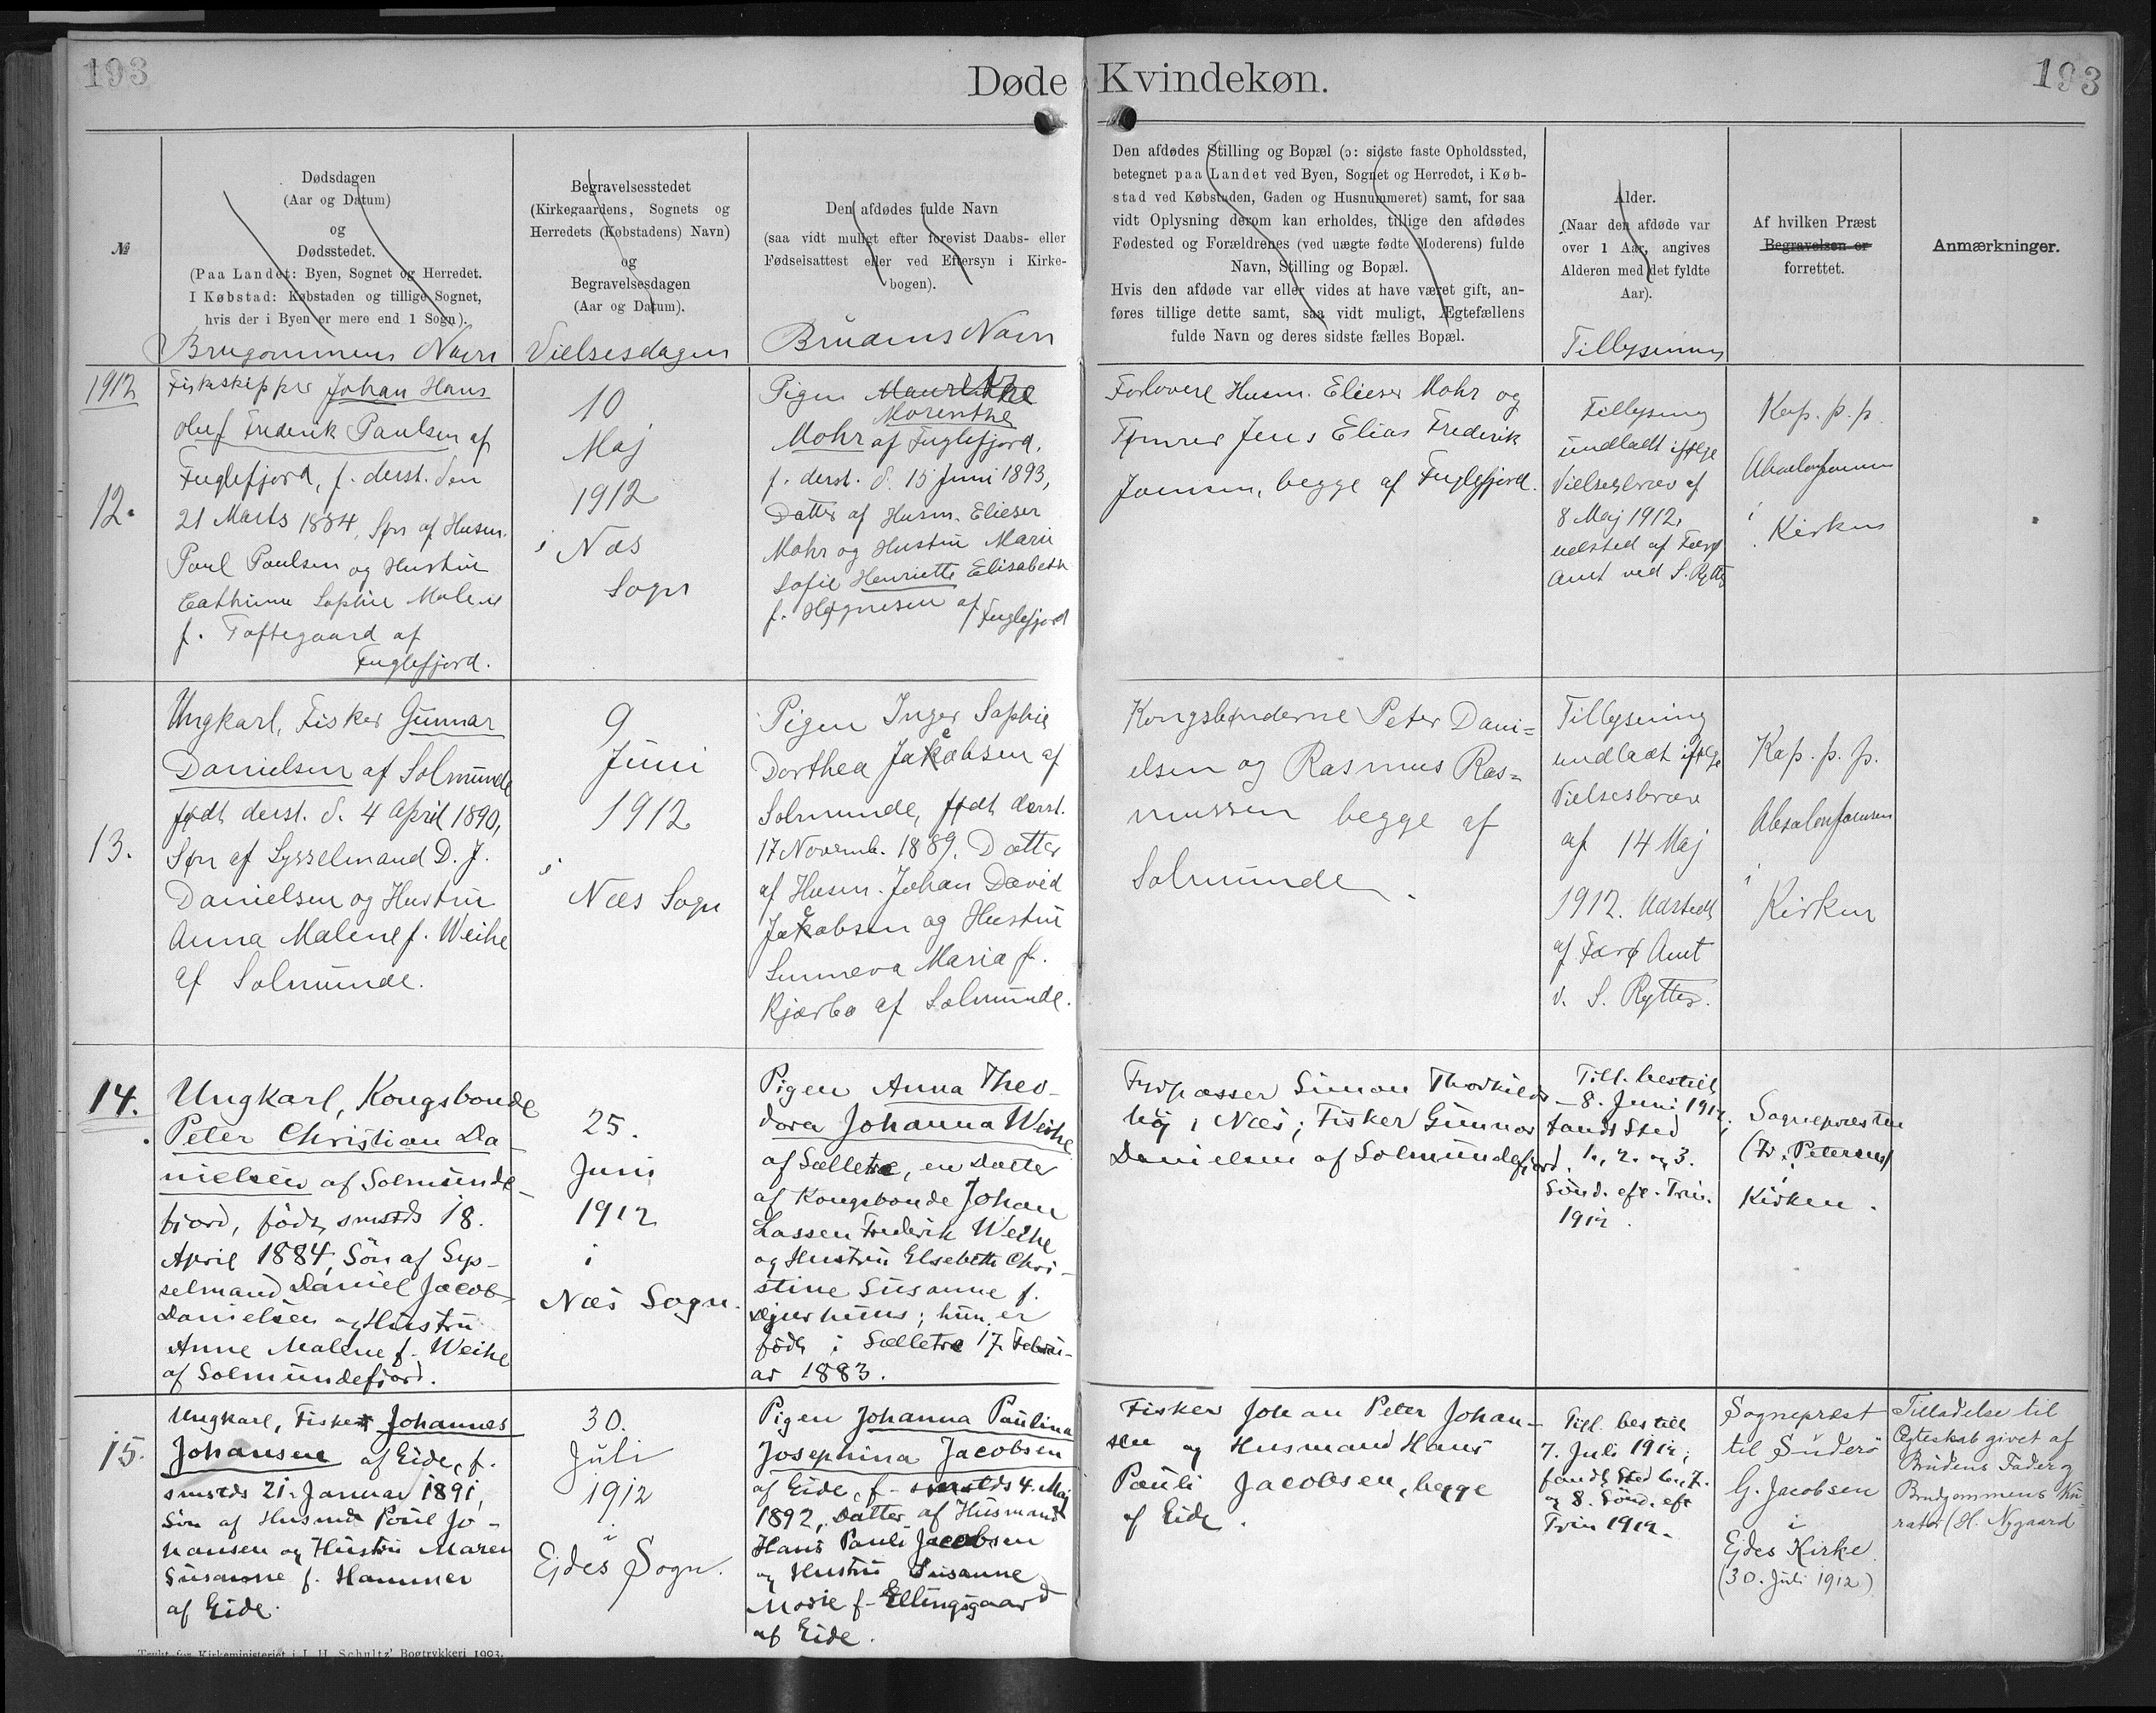 193
Døde Kvindekøn.
193
№
Dødsdagen
(Aar og Datum)
og
Dødsstedet.
(Paa Landet: Byen, Sognet og Herredet.
I Købstad: Købstaden og tillige Sognet,
hvis der i Byen er mere end 1 Sogn).
Brugommens Navn
Begravelsesstedet
(Kirkegaardens, Sognets og
Herredets (Købstadens) Navn)
og
Begravelsesdagen
(Aar og Datum).
Vielsesdagen
Den afdødes fulde Navn
(saa vidt muligt efter forevist Daabs- eller
Fødselsattest eller ved Eftersyn i Kirke-
bogen).
Brudens Navn
Den afdødes Stilling og Bopæl (ɔ: sidste faste Opholdssted,
betegnet paa Landet ved Byen, Sognet og Herredet, i Køb-
stad ved Købstaden, Gaden og Husnummeret) samt, for saa
vidt Oplysning derom kan erholdes, tillige den afdødes
Fødested og Forældrenes (ved uægte fødte Moderens) fulde
Navn, Stilling og Bopæl.
Hvis den afdøde var eller vides at have været gift, an-
føres tillige dette samt, saa vidt muligt, Ægtefællens
fulde Navn og deres sidste fælles Bopæl.
Alder.
(Naar den afdøde var
over 1 Aar, angives
Alderen med det fyldte
Aar).
Tillysning
Af hvilken Præst
Begravelsen er
forrettet.
Anmærkninger.
1912
12.
Fiskeskipper Johan Hans
Oluf Frederik Paulsen af
Fuglefjord, f. derst. den
21 Marts 1884, Søn af Husm.
Poul Poulsen og Hustru
Cathrine Sophie Malene
f. Toftegaard af
Fuglefjord.
10
Maj
1912
i Næs
Sogn
Pigen
Morenthe
Mohr af Fuglefjord,
f. derst. d. 15 Juni 1893,
Datter af Husm. Elieser
Mohr og Hustru Marie
Sofie Henriette Elisabeth
f. Høgnesen af Fuglefjord
Forlovere Husm. Elieser Mohr og
Tømrer Jens Elias Frederik
Joensen, begge af Fuglefjord.
Tillysning
undladt ifølge
Vielsesbrev af
8 Maj 1912,
udsted af Færø
Amt ved S. Rytter
Kap. p. p.
Absalonjoensen
i
Kirken
13.
Ungkarl, Fisker Gunnar
Danielsen af Solmunde
født derst. d. 4 April 1890,
Søn af Sysselmand D. J.
Danielsen og Hustru
Anna Malene f. Weihe
af Solmunde.
9
Juni
1912
i
Næs Sogn
Pigen Inger Sophie
Dorthea Jacobsen af
Solmunde, født derst.
17 Novemb. 1889. Datter
af Husm. Johan David
Jacobsen og Hustru
Sunneva Maria f.
Kjærbo af Solmunde.
Kongsbønderne Peter Dani=
elsen og Rasmus Ras=
mussen begge af
Solmunde.
Tillysning
undladt ifølge
Vielsesbrev
af 14 Maj
1912. Udstedt
af Færø Amt
v. S. Rytter.
Kap. p. p.
Absalonjoensen
i
Kirken
14.
Ungkarl, Kongsbonde
Peter Christian Da-
nielsen af Solmunde-
fjord, født smstds 18.
April 1884, Søn af Sys-
selmand Daniel Jacob
Danielsen og Hustru
Anne Malene f. Weihe
af Solmundefjord.
25.
Juni
1912
i
Næs Sogn.
Pigen Anna Theo-
dora Johanna Weihe
af Selletræ, en Datter
af Kongsbonde Johan
Lassen Frederik Weihe
og Hustru Elsebeth Chri-
stine Susanne f.
Djurhuus; hun er
født i Selletræ 17. Febru-
ar 1883.
Fyrpasser Simon Thorkilds-
høj i Næs; Fisker Gunnar
Danielsen af Solmundefjord.
Till. bestilt
8. Juni 1912,
fandt Sted
1., 2. og 3.
Sønd. eft. Trin.
1912.
Sognepræsten
(Fr. Petersen)
i
Kirken.
15.
Ungkarl, Fisker Johannes
Johansen af Eide, f.
smstds 21. Januar 1891,
Søn af Husmd Poul Jo-
hansen og Hustru Maren
Susanne f. Hammer
af Eide.
30.
Juli
1912
i
Ejdes Sogn.
Pigen Johanna Paulina
Josephina Jacobsen
af Eide, f. smstds 4. Maj
1892, Datter af Husmand
Hans Pauli Jacobsen
og Hustru Susanne
Marie f. Ellingsgaard
af Eide.
Fisker Johan Peter Johan-
sen og Husmand Hans
Pauli Jacobsen, begge
af Eide.
Till. bestilt
7. Juli 1912;
fandt Sted 6., 7.
og 8. Sønd. eft
Trin 1912.
Sognepræst
til Suderø
G. Jacobsen
i
Ejdes Kirke
(30. Juli 1912)
Tilladelse til
Ægteskab givet af
Brudens Fader og
Brudgommens Ku-
rator (H. Nygaard
Trykt for Kirkeministeriet i J. H. Schultz' Bogtrykkeri 1903.